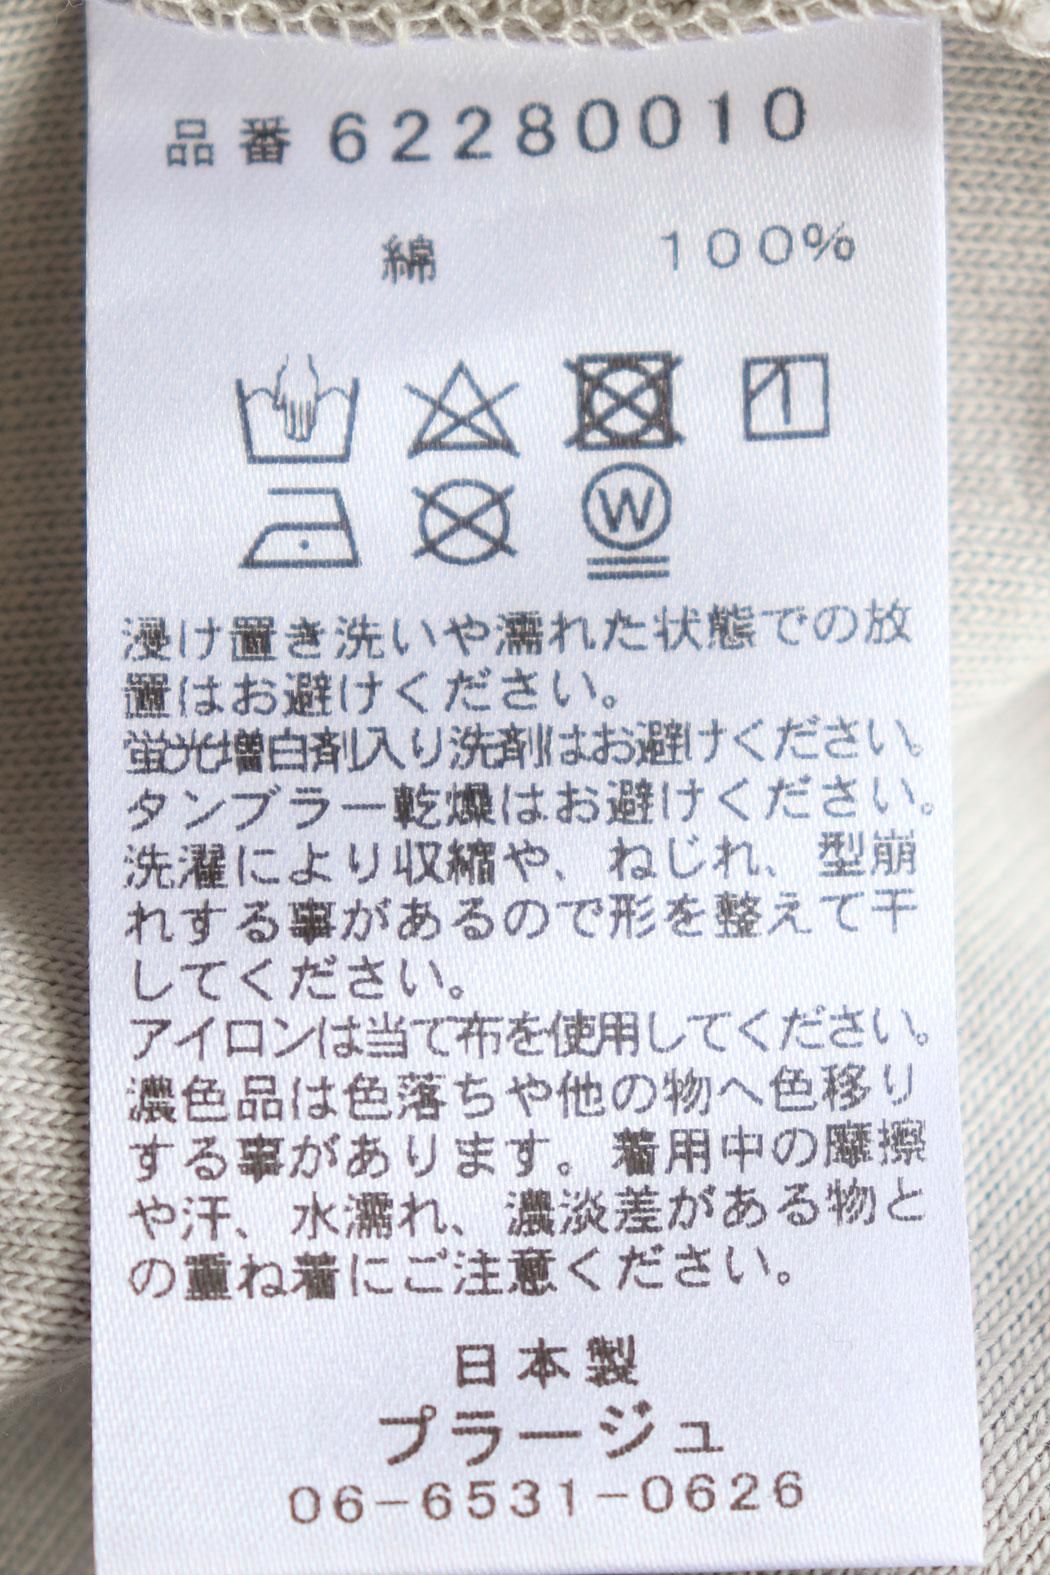 品番 62280010
綿 100%
W
浸け置き洗いや濡れた状態での放
置はお避けください。
蛍光増白剤入り洗剤はお避けください。
タンブラー乾燥はお避けください。
洗濯により収縮や、ねじれ、型崩
れする事があるので形を整えて干
してください。
アイロンは当て布を使用してください。
濃色品は色落ちや他の物へ色移り
する事があります。着用中の摩擦
や汗、水濡れ、濃淡差がある物と
の重ね着にご注意ください。
日本製
プラージュ
06-6531-0626